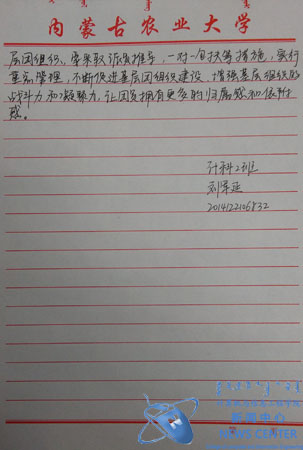 内蒙古农业大学
层团组织、要采取诉求推导，一对一包扶等措施，实行
重点管理，不断促进基层团组织建设，增强基层组织的
战斗力和凝聚力，让团员拥有更多的归属感和依附
感。
计科2班
刘军延
2014122106832
新闻中心
NEWS CENTER